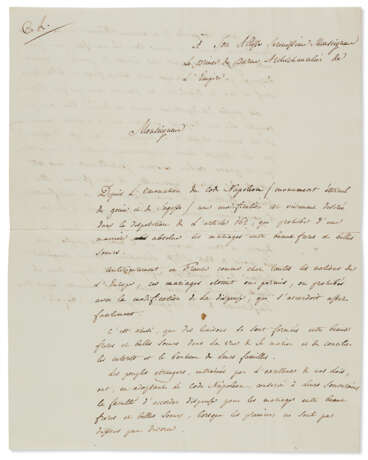 A Son Altesse Sérénissime Monseigneur
Le Prince de Parme, Archichancelier de
l'Empire
Monseigneur
Depuis l'émanation du Code Napoléon (monument éternel
de génie et de sagesse) une modification est vivement désirée
dans la disposition de l'article 162, qui prohibe d'une
manière absolue les mariages entre beaux frères et belles
sœurs.
Antérieurement, en France comme chez toutes les nations de
l'Europe, ces mariages étoient ou permis, ou prohibés
avec la modification de la dispense, qui s'accordoit assez
facilement.
C'est ainsi, que des liaisons se sont formées entre beaux
frères et belles sœurs dans la vue de la nation et de concilier
les intérêts et le bonheur de leurs familles.
Les peuples étrangers, entrainés par l'excellence de vos lois,
ont, en adoptant le code Napoléon, conservé à leurs Souverains
la faculté d'accorder dispense pour les mariages entre beaux
frères et belles sœurs, lorsque les premiers ne sont pas
dissous par divorce.